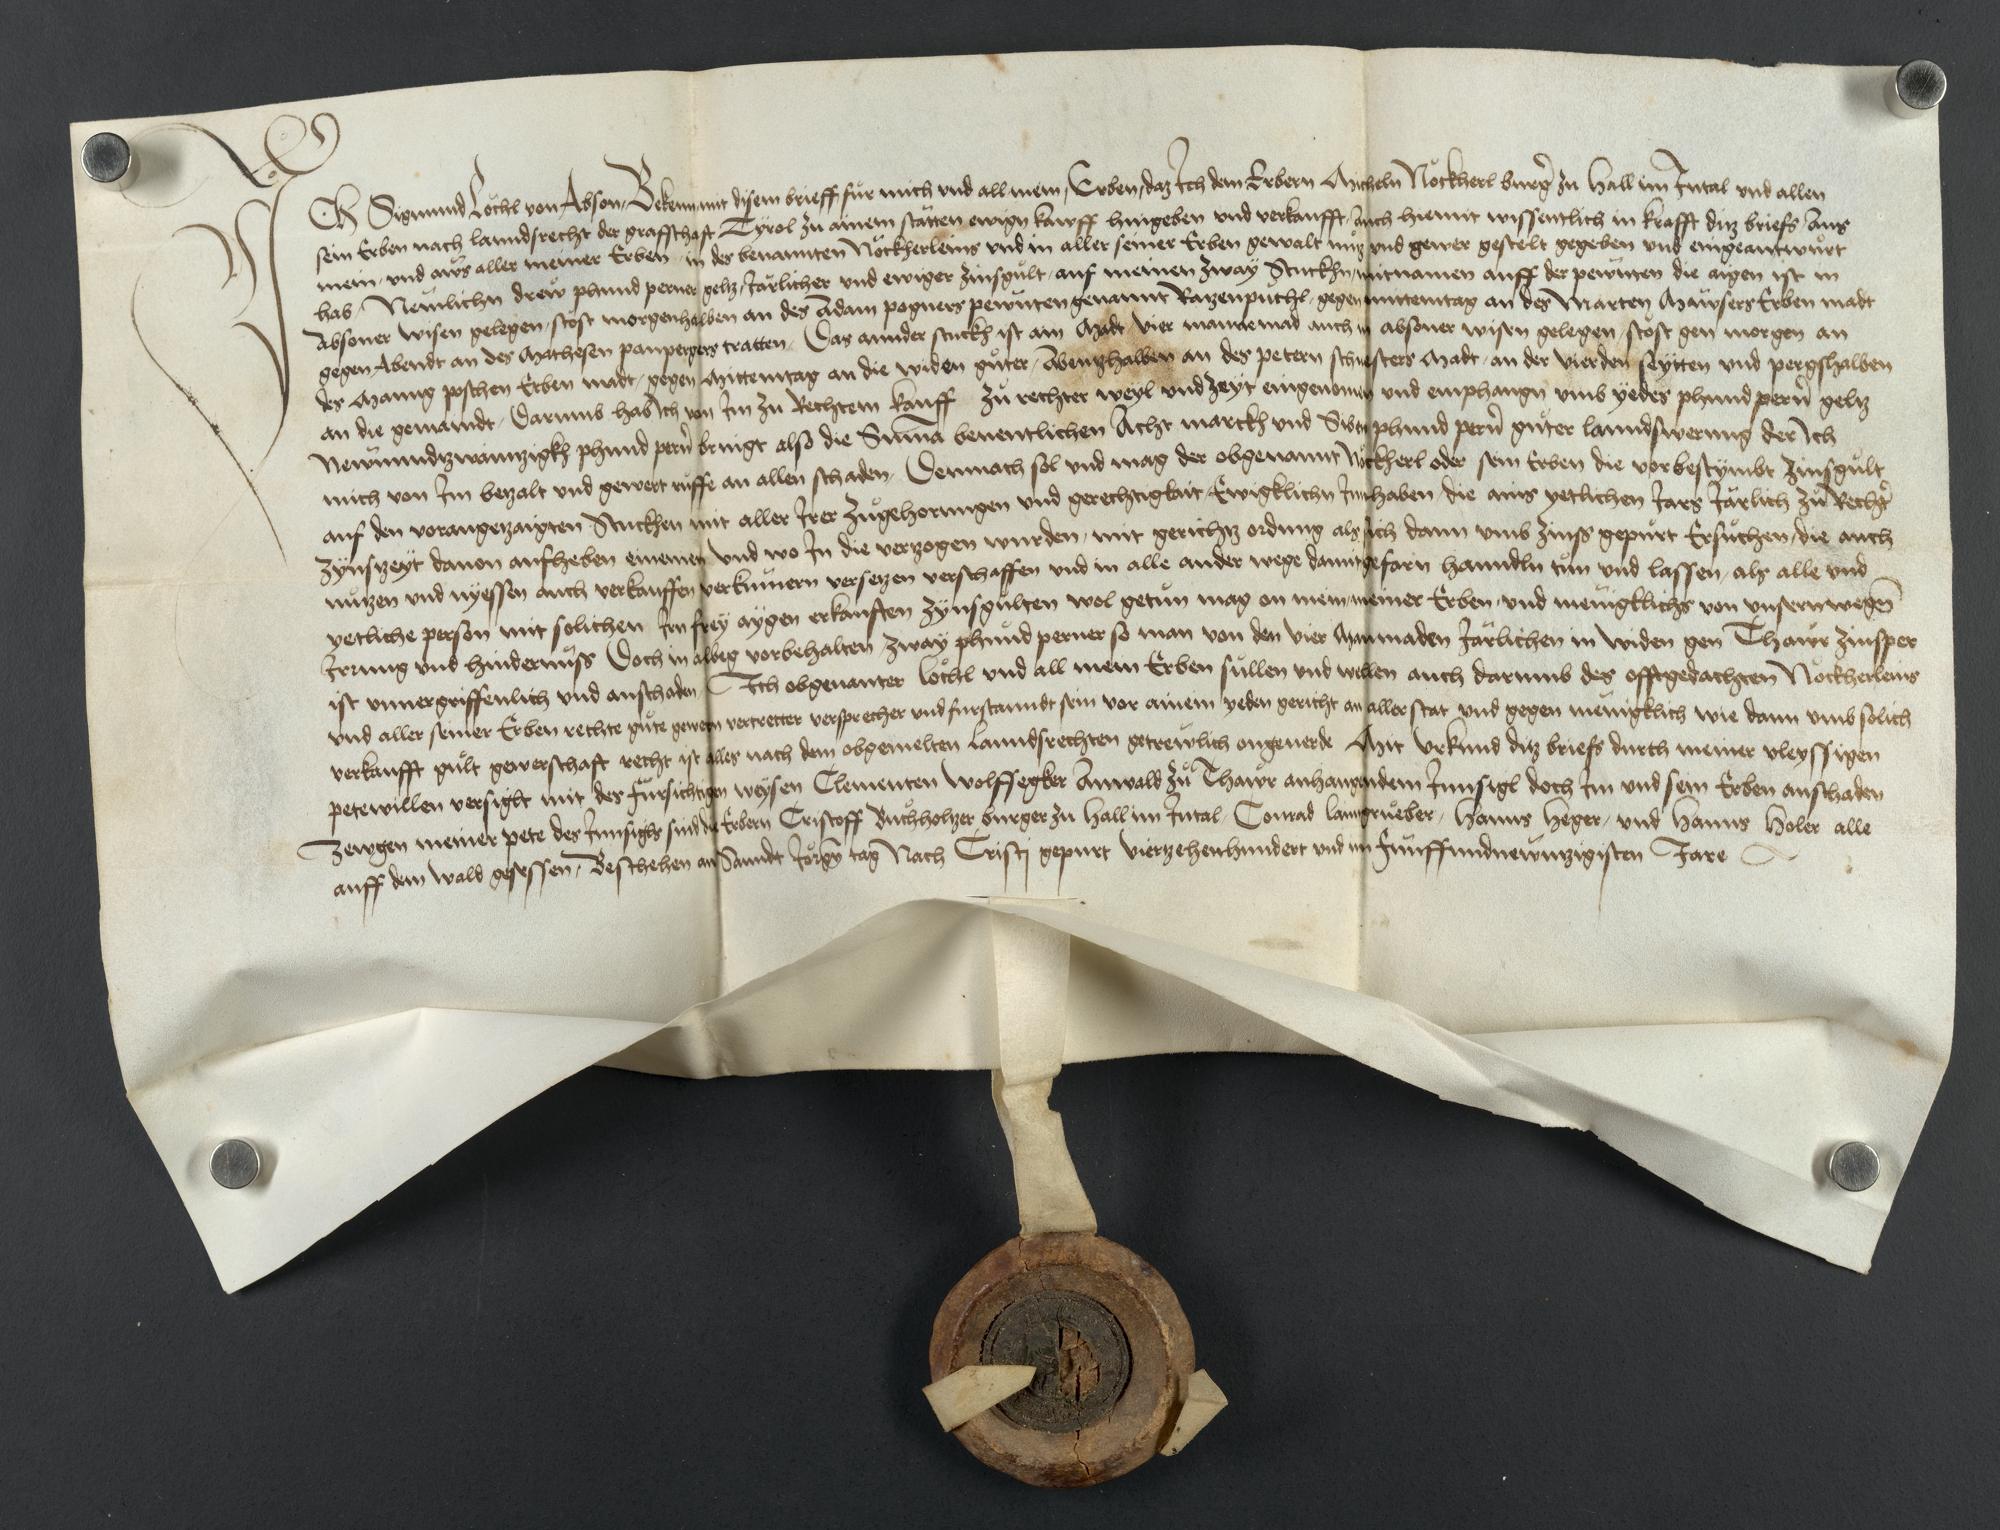 Ich Sigmund Löchl von Abson, Bekenn mit disem brieff für mich und all mein Erben, daz Ich dem Erbern Micheln Nöckherl burgr zu Hall im Intal und allen
sein Erben nach lanndsrecht der graffschaft Tyrol zu ainem stätten ewign kawff hingeben und verkaufft, Auch hiemit wissentlich in krafft ditz briefs Aus
mein und aws aller meiner Erben in des benannten Nöckherleins und in aller seiner Erben gewalt nutz und gewer gestelt gegeben und eingeantwurt
hab. Newlichn drew phund perner geltz Järlicher und ewiger Zinsgült, auf meinen zway Stuckhn, mitnamen auff der pewnten die aigen ist in
Absoner wisen gelegen, stost morgenhalben an des Adam pogners pewnten genannt Ratzenpüchl, gegen mittemtag an des Marten Mawsers Erben madt
gegen Abendt an des Mathesen panpergers tratten. Das annder stuckh ist ain Madt vier mannemad auch in absoner wisen gelegen, stost gen morgen an
des Manng poschen Erben madt, gegen Mittemtag an die widen güter, Abentzhalben an des petern schuesters Madt, an der vierden seytten und pergshalben
an die gemaindt, Darumb hab Ich von Im zu Rechtem kauff zu rechter weyl und zeyt eingenomen und emphangn umb yedes phund pern geltz
Newnundtzwainzigkh phund pern bringt also die Suma benentlichen Acht marckh und Siben phund pern guter lanndswerung der Ich
mich von Im betzalt und gewert rüffe an allen schaden, Demnach sol und mag der obgenannt Nöckherl oder sein Erben die vorbestymbt Zinsgült
auf den vorangetzaigten Stuckhen mit aller Irer Zugehorungen und gerechtigkait, Ewigklichn Innhaben, die ains yetlichen Jars Järlich zu Rechtr
Zynszeyt davon aufheben einemen und wo In die vertzogen wurden, mit gerichtz ordnung als sich dann umb Zinss gepürt Ersuchen, die auch
nutzen und nyessen auch verkauffen verkumern versetzen verschaffen und in alle ander wege damit gefarn hanndln tun und lassen, als alle und
yetliche person mit solichen Irn frey aygen erkauften Zynsgülten wol getun mag on mein, meiner Erben, und menigklichs von unsern wegen
Irrung und hindernüss Doch in albeg vorbehalten Zway phund perner so man von den vier Manmaden Järlichen in widen gen Thawr Zinsper
ist unvergriffenlich und anschaden, Ich obgenanter Löchl und all mein Erben sullen und wellen auch darumb des offtgedachten Nöckherleins
und aller seiner Erben rechte gute gewern vertretter versprecher und furstanndt sein vor ainem yeden gericht an aller stat und gegen menigklich wie dann umb solich
verkaufft gült gewerschaft recht ist alles nach dem obgemelten Lanndsrechten getrewlich ongeverde Mit Urkund ditz briefs durch meiner vleyssigen
petewillen versiglt mit des fürsichtigen weysen Clementen wolffsegker Anwald zu Thawr anhangendem Innsigl doch Im und sein Erben anschaden
Zewgen meiner pete des Innsigls sind die Erbern Cristoff Buchholtzer burger zu Hall im Intal, Conrad laimgrueber, Hanns Heger, und Hanns Holer alle
auff dem wald gesessen, Beschehen an Sanndt Jorgn tag Nach Cristj gepurt viertzehenhundert und im fünffundnewnzigisten Jare